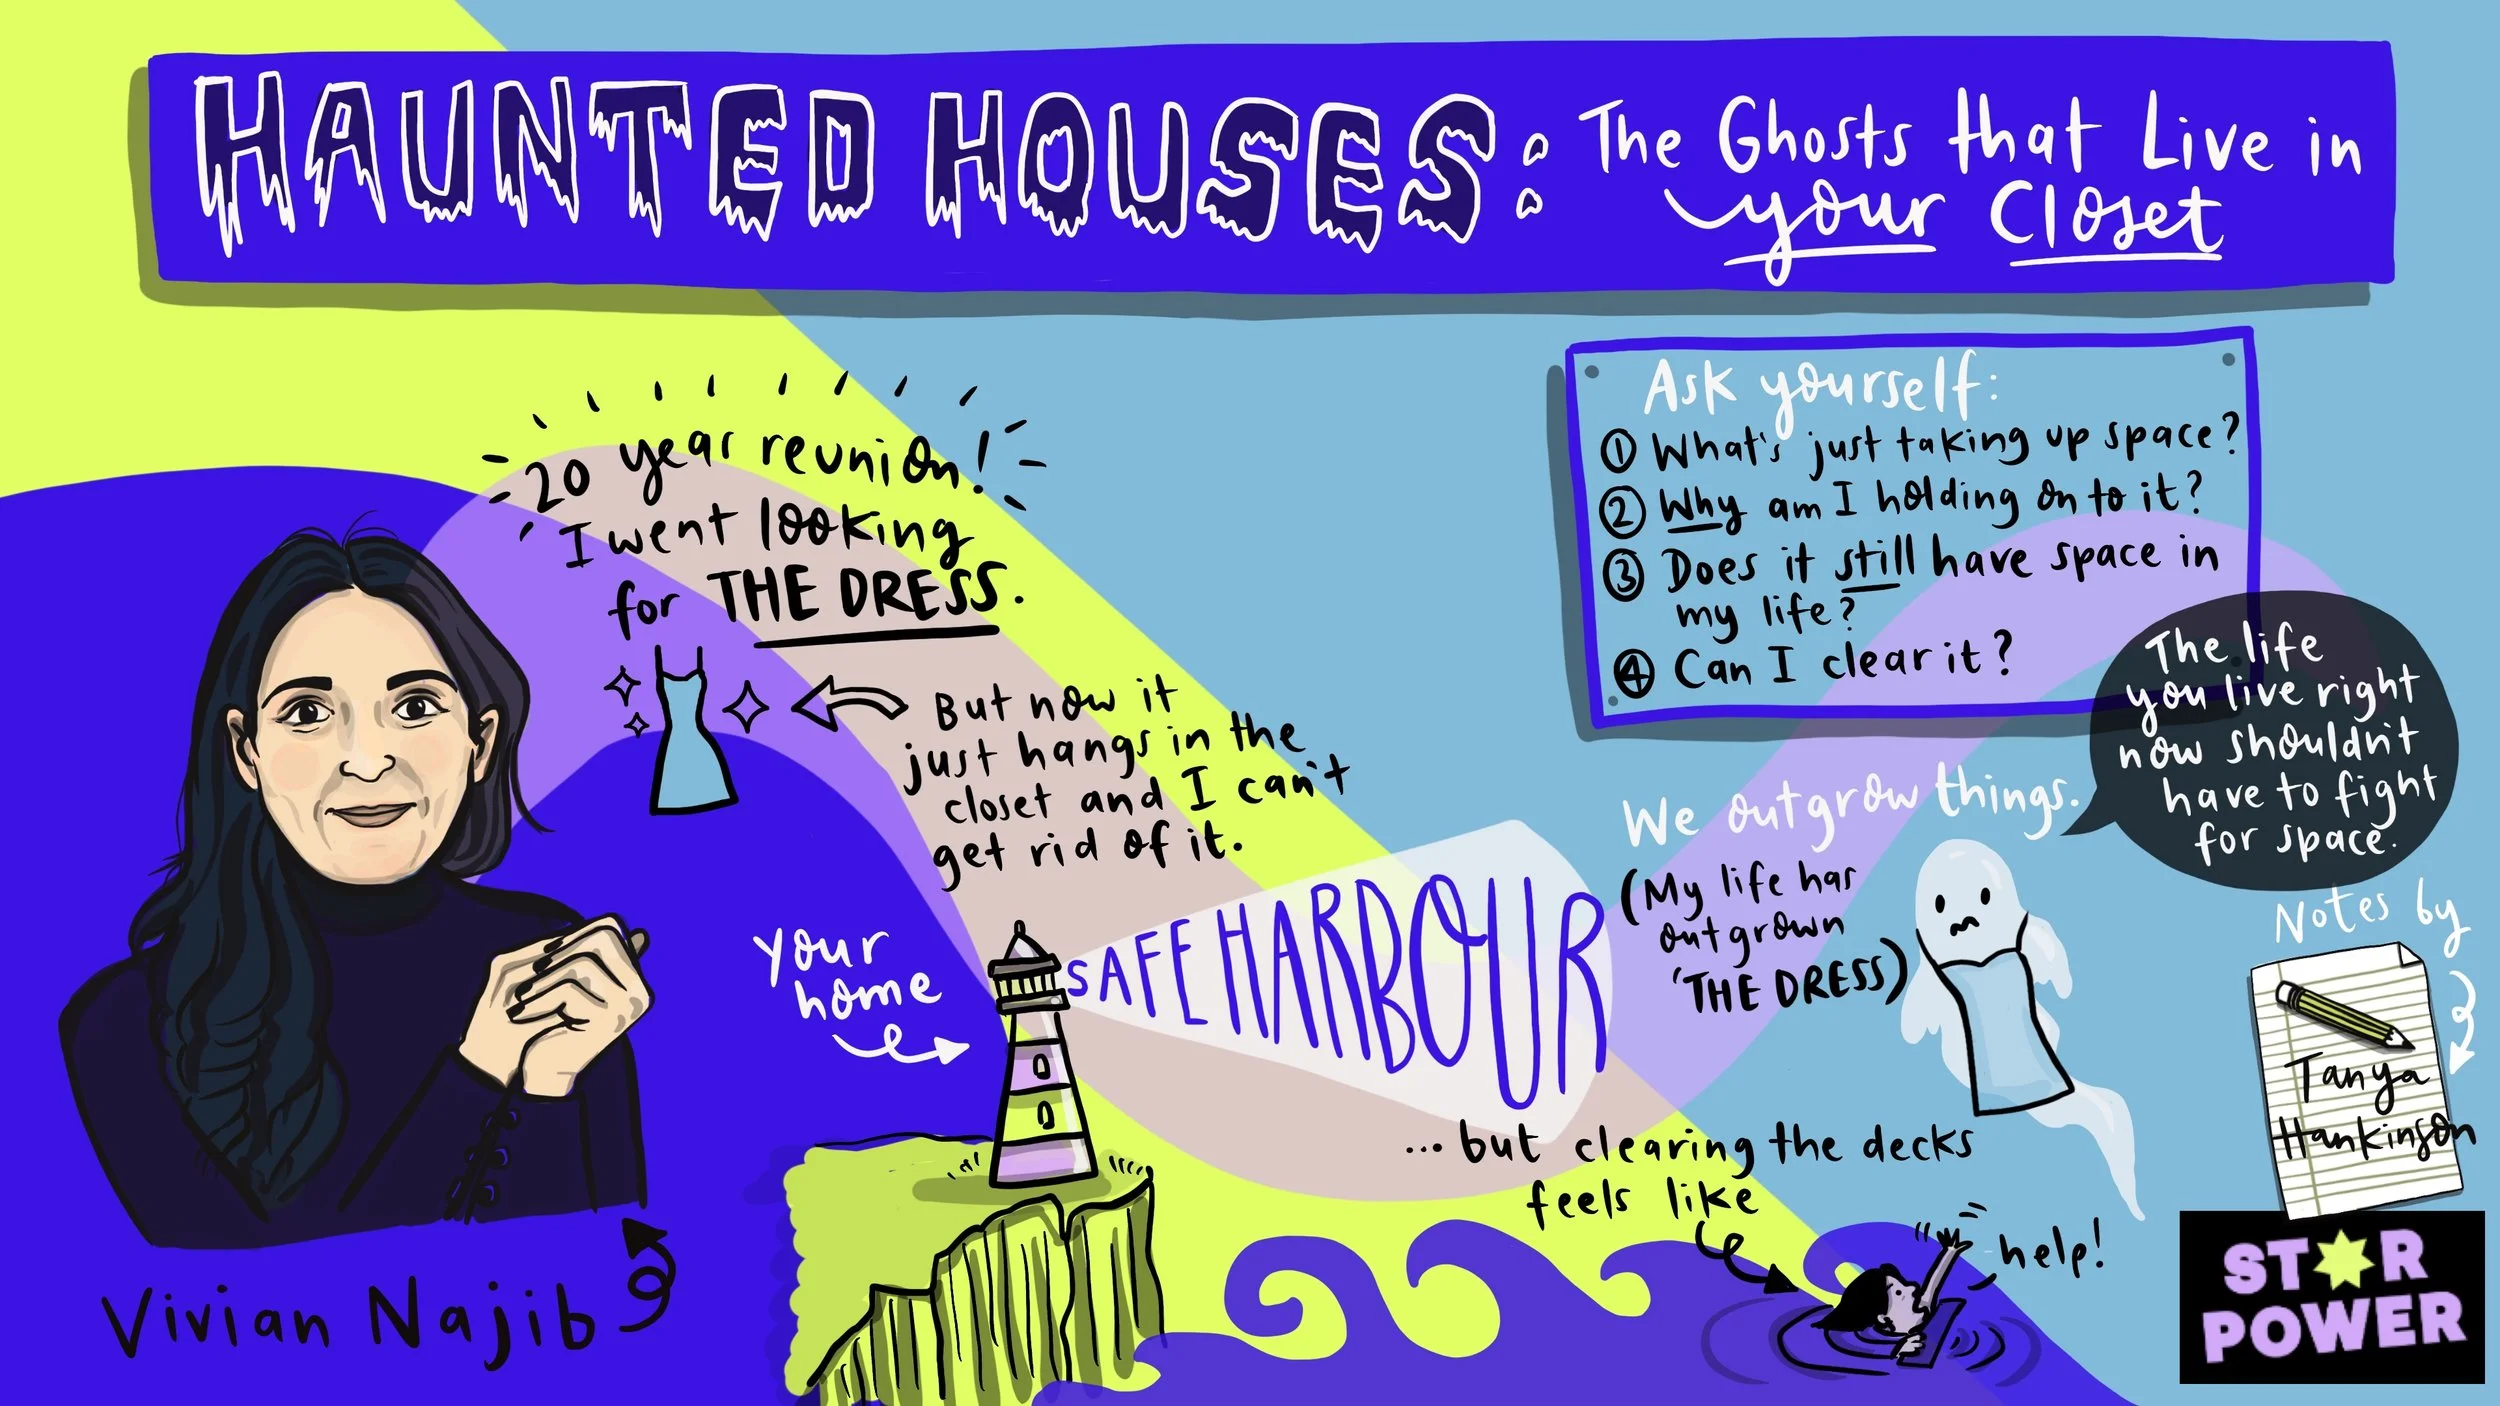 HAUNTED HOUSES: The Ghosts that Live in
your Closet
20 year reunion!
I went looking
for THE DRESS.
But now it
just hangs in the
closet and I can't
get rid of it.
Ask yourself:
① What's just taking up space?
② Why am I holding on to it?
③ Does it still have space in
my life?
④ Can I clear it?
The life
you live right
now shouldn't
have to fight
for space.
We outgrow things.
(My life has
outgrown
'THE DRESS)
your
home
SAFE HARBOUR
...but clearing the decks
feels like
help!
Vivian Najib
Notes by
Tanya
Hankinson
STAR
POWER